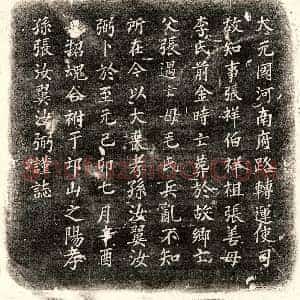 大元國河南府路轉運使司
故知事張祥伯祥祖張善母
李氏前金時士葬於故鄉
父張遇
母毛氏兵亂不知
所在今以大葬孝孫汝翼汝
弼卜於至元己卯七月辛酉
招魂合祔于邙山之陽孝
孫張汝翼汝弼謹誌